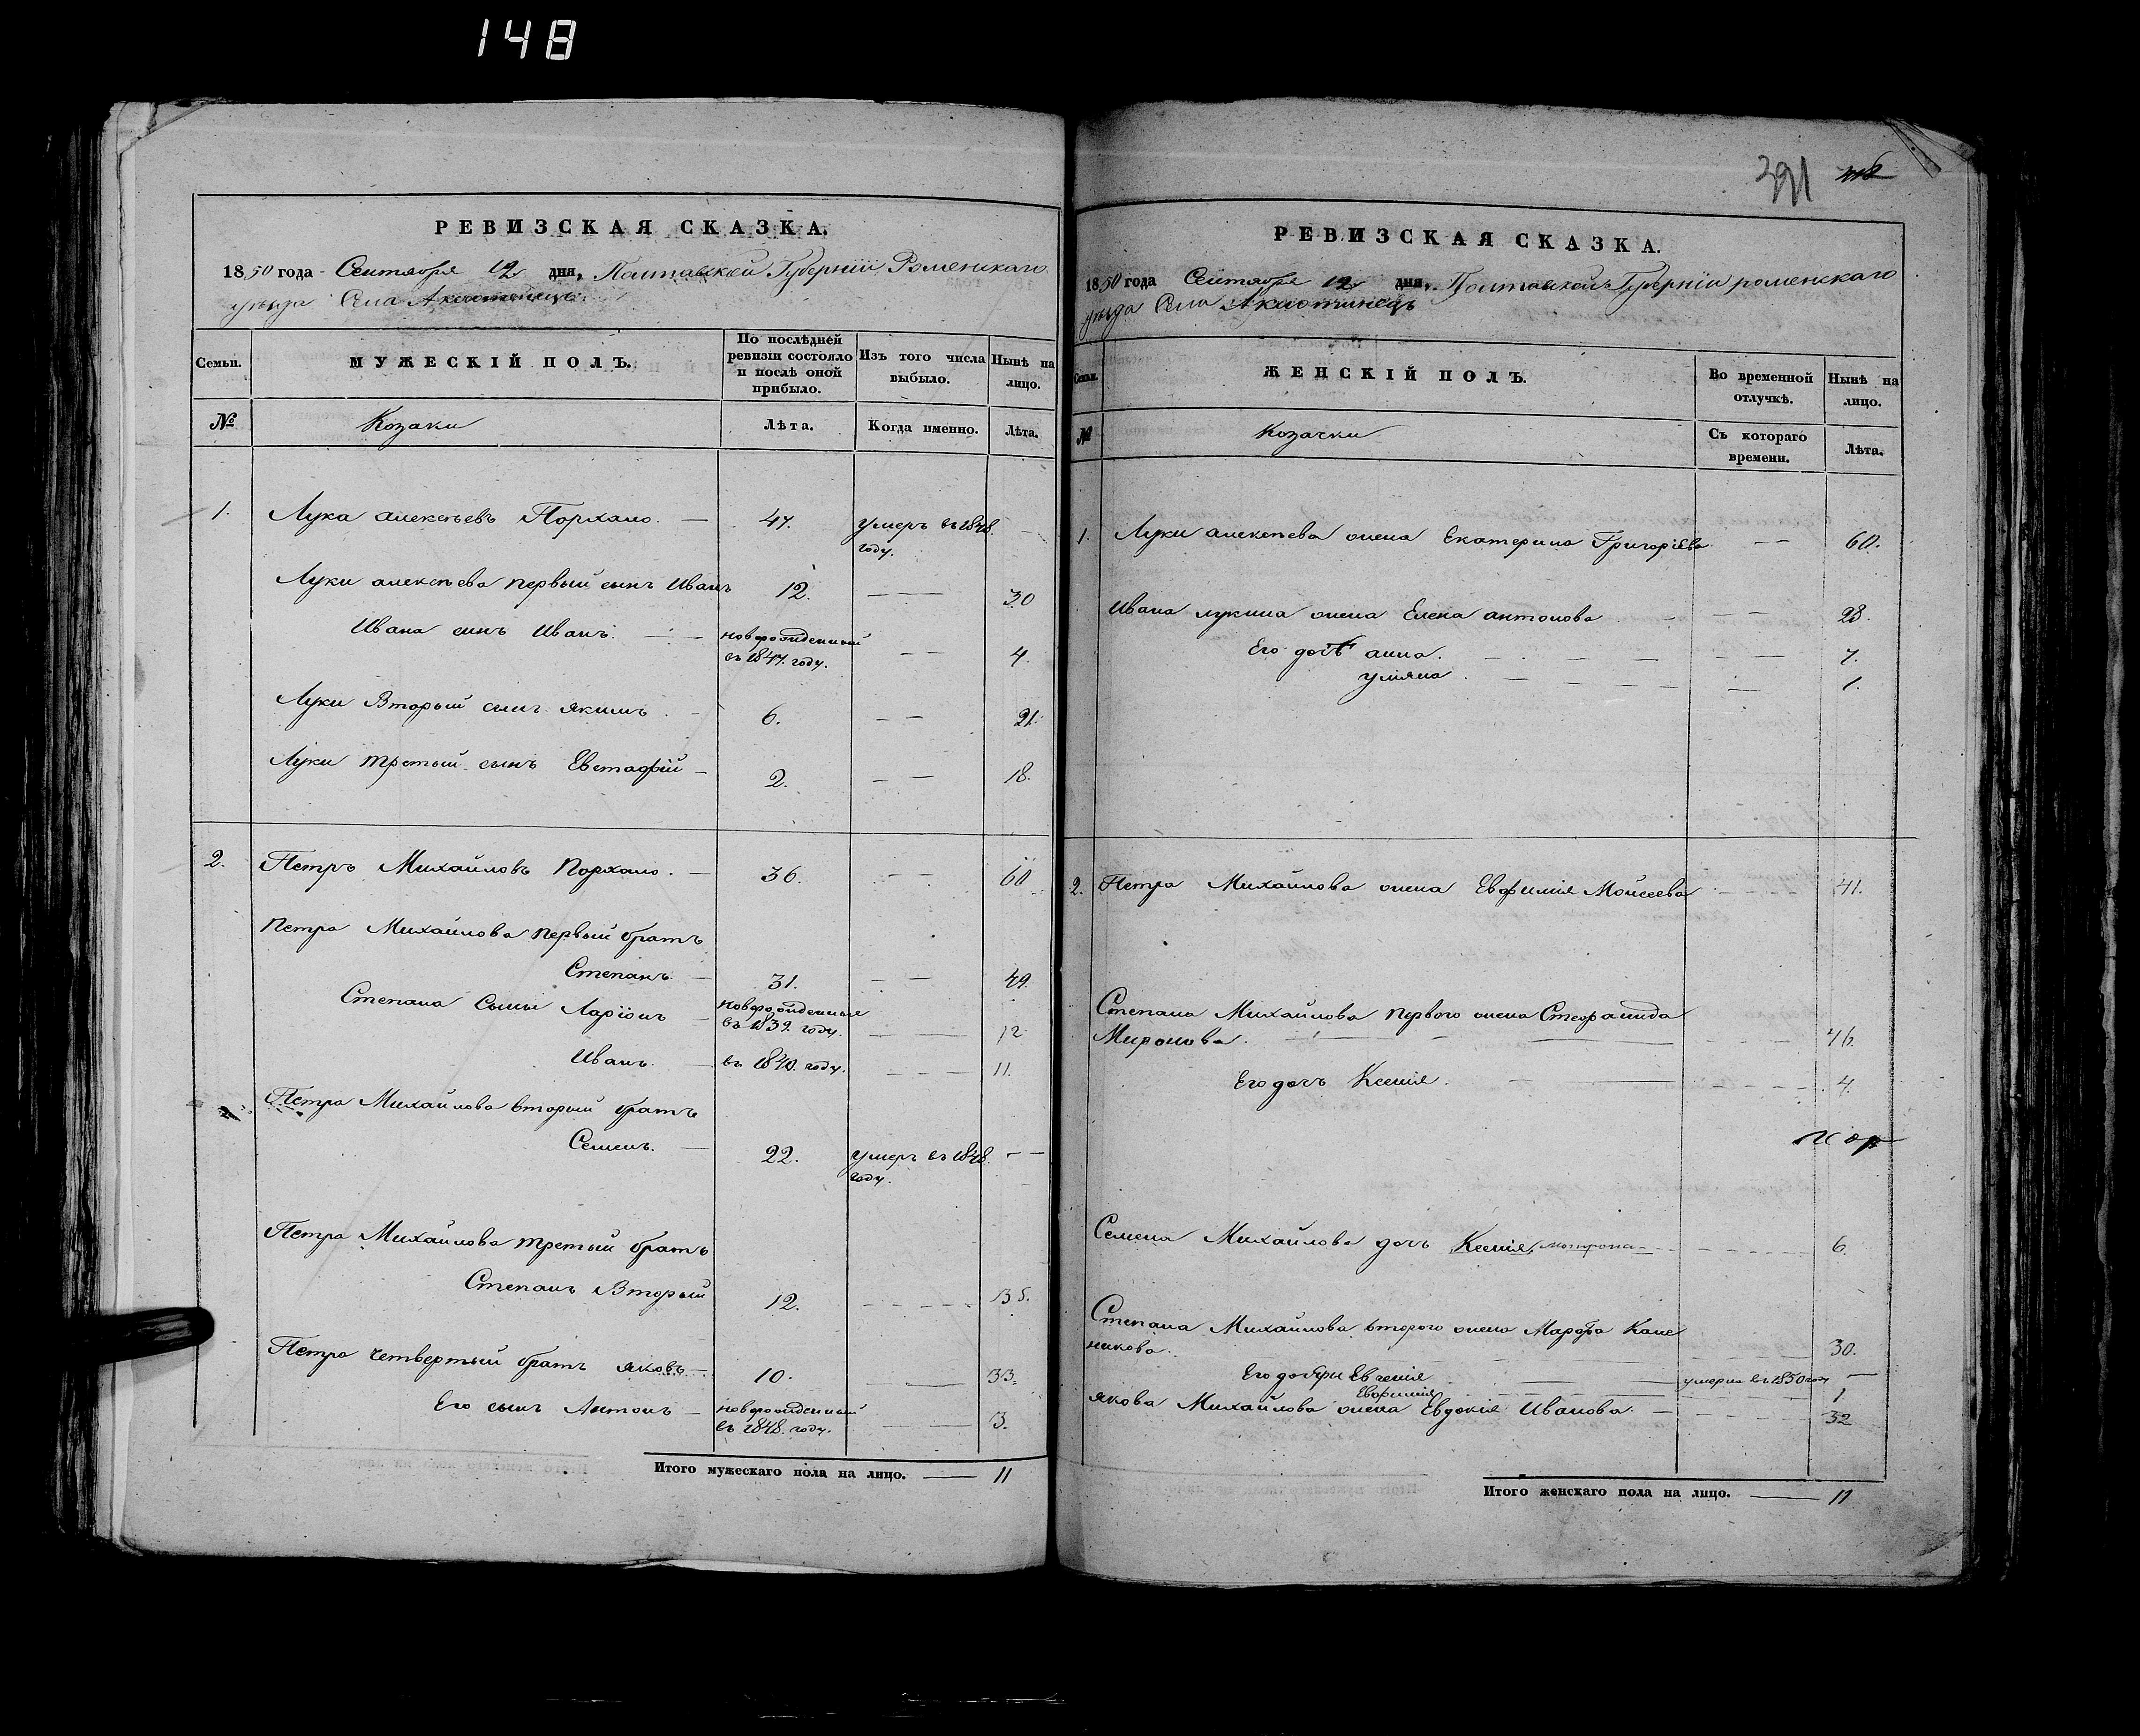 148
391
РЕВИЗСКАЯ СКАЗКА.
1850 года Сентября 12 дня, Полтавской Губерніи Роменскаго
уѣзда Села
Семьи.
МУЖЕСКІЙ ПОЛЪ.
По послѣдней ревизіи состояло и послѣ оной прибыло.
Изъ того числа выбыло.
Нынѣ на лицо.
№
Козаки
Лѣта.
Когда именно.
Лѣта.
1. Лука алексѣевъ Порхало. — 47. умеръ въ 1848. —
году.
Луки алексѣева первый сынъ Иванъ 12. — — 30
Ивана сынъ Иванъ. — — новорожденный
въ 1847. году. — — 4.
Луки Вторый сынъ якимъ . — 6. — — 21.
Луки третый сынъ Евстафій — 2. — — 18.
2. Петръ Михайловъ Порхало. — 36. — — 60
Петра Михайлова первый братъ
Степанъ. — 31. — — 49.
Степана Сыны Ларіонъ — новорожденные
въ 1839. году. — — 12
Иванъ. — въ 1840. году. — — — 11.
Петра Михайлова вторый братъ
Семенъ. — 22. умеръ въ 1848. — —
году.
Петра Михайлова третый братъ
Степанъ Вторый 12. — — — — 35.
Петра четвертый братъ яковъ — 10. — — 33.
Его сынъ Антонъ — новорожденный
въ 1848. году. — — 3.
Итого мужескаго пола на лицо. — 11
РЕВИЗСКАЯ СКАЗКА.
1850 года Сентября 12 дня, Полтавской Губерніи роменскаго
уѣзда Села
Семьи.
ЖЕНСКІЙ ПОЛЪ.
Во временной отлучкѣ.
Нынѣ на лицо.
№
Козачки
Съ котораго времени.
Лѣта.
1. Луки алексѣева жена Екатерина Григоріева — — 60.
Ивана лукина жена Елена антонова . — — — 28.
Его дочь анна. — — — — — — 7.
уліяна . — — — — — 1.
2. Петра Михайлова жена Евфимія Мойсеева — — — 41.
Степана Михайлова первого жена Стефанида
Миронова. — — — — — — 46.
Его дочь Ксенія. — — — — — — 4.
Семена Михайлова дочь Ксенія, — — — — — 6.
Степана Михайлова второго жена Марфа
30.
Его дочери Евгенія — — умерла въ 1850 году —
Евфимія — — 1.
якова Михайлова жена Евдокія Иванова. — — — — 32
Итого женскаго пола на лицо. — 11